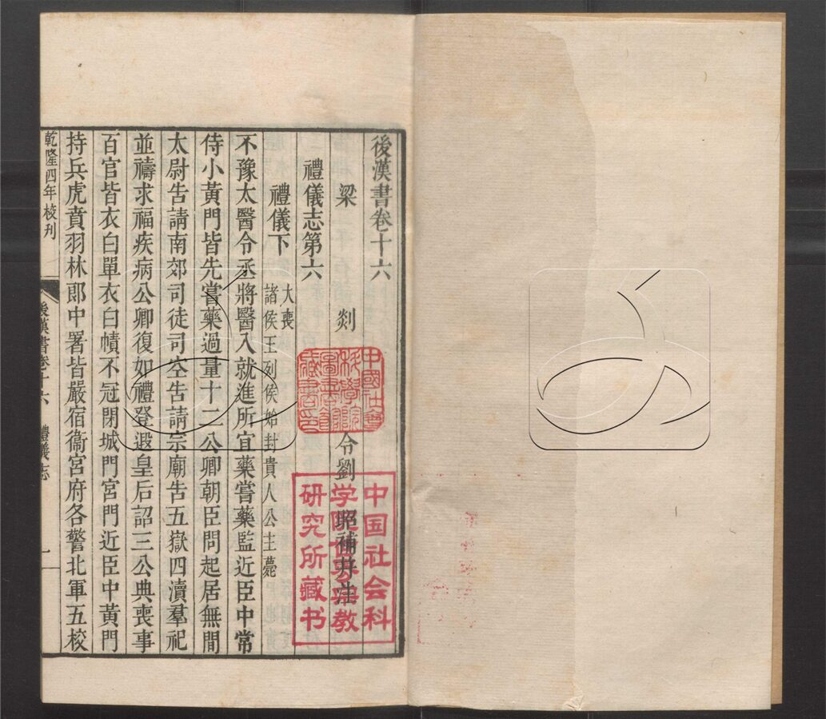 後漢書卷十六
梁 剡 令 劉 昭 補 并 注
禮儀志第六
禮儀下 大喪 諸侯王列侯始封貴人公主薨
不豫太醫令丞將醫入就進所宜藥嘗藥監近臣中常
侍小黃門皆先嘗藥過量十二公卿朝臣問起居無間
太尉告請南郊司徒司空告請宗廟告五嶽四瀆羣祀
並禱求福疾病公卿復如禮登遐皇后詔三公典喪事
百官皆衣白單衣白幘不冠閉城門宮門近臣中黃門
持兵虎賁羽林郎中署皆嚴宿衞宮府各警北軍五校
乾隆四年校刊
後漢書卷十六 禮儀志 一
中國社會
科學院
圖書館
藏書印
中国社会科
学院世界宗教
研究所藏书